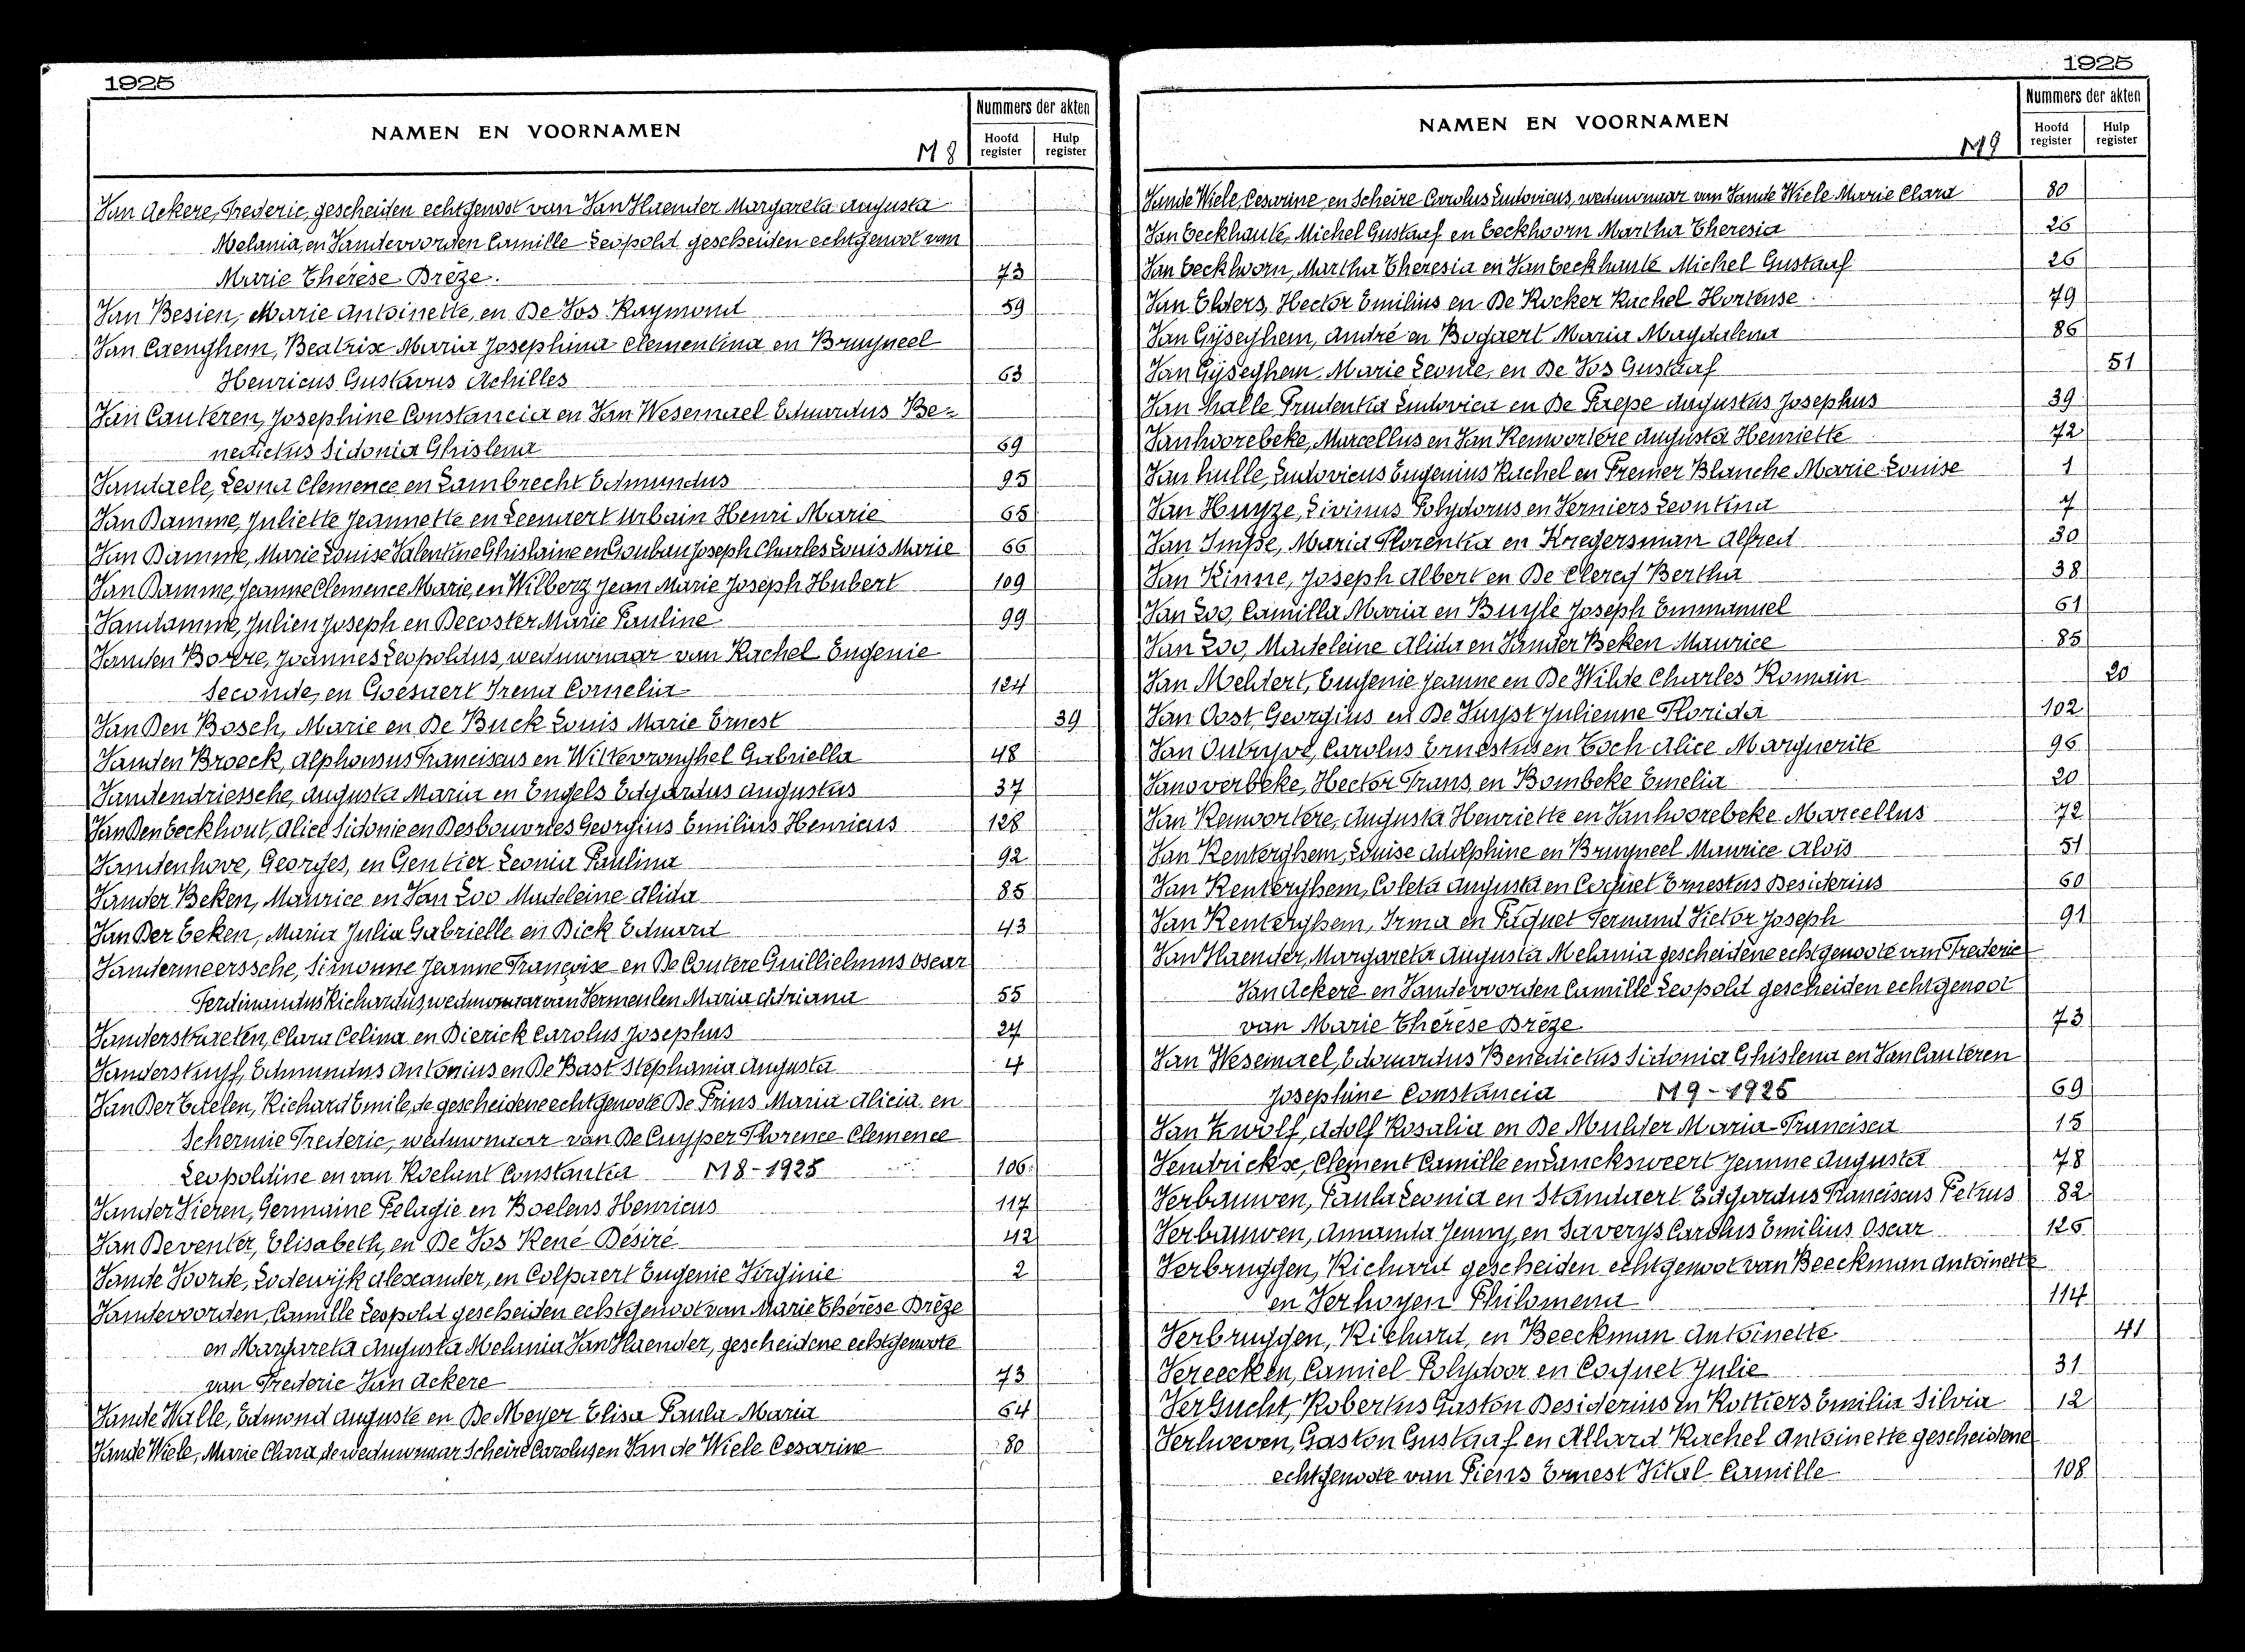 1925
NAMEN EN VOORNAMEN
M 8
Nummers der akten
Hoofd register
Hulp register
Van Ackere, Frederic, gescheiden echtgenoot van Van Haender Margareta Augusta
Melania, en Vandevoorden Camille Leopold gescheiden echtgenoot van
Marie Thérèse Brèze. 73
Van Besien, Marie Antoinette, en De Vos Raymond 59
Van Caenghem, Beatrix Maria Josephina Clementina en Bruyneel
Henricus Gustavus Achilles 63
Van Cauteren, Josephine Constancia en Van Wesemael Eduardus Be-
nedictus Sidonia Ghislena 69
Vandaele, Leona Clemence en Lambrecht Edmundus 95
Van Damme, Juliette Jeannette en Leenaert Urbain Henri Marie 65
Van Damme, Marie Louise Valentine Ghislaine en Goubau Joseph Charles Louis Marie 66
Van Damme, Jeanne Clemence Marie, en Wilberz Jean Marie Joseph Hubert 109
Vandamme, Julien Joseph en Decoster Marie Pauline 99
Vanden Bossche, Joannes Leopoldus, weduwnaar van Rachel Eugenie
Seconde, en Goesaert Irena Cornelia 124
Van Den Bosch, Marie en De Buck Louis Marie Ernest 39
Vanden Broeck, Alphonsus Franciscus en Wittevronghel Gabriella 48
Vandendriessche, Augusta Maria en Engels Edgardus Augustus 37
Van Den Eeckhout, Alice Sidonie en Desbouvries Georgius Emilius Henricus 128
Vandenhove, Georges, en Gentier Leonia Paulina 92
Vander Beken, Maurice en Van Loo Madeleine Alida 85
Van Der Eeken, Maria Julia Gabrielle en Dick Eduard 43
Vandermeerssche, Simonne Jeanne Françoise en De Coutere Guillielmus Oscar
Ferdinandus Richardus, weduwnaar van Vermeulen Maria Adriana 55
Vanderstraeten, Clara Celina en Dierick Carolus Josephus 27
Vanderstuyf, Edmundus Antonius en De Bast Stephania Augusta 4
Van Der Eecelen, Richard Emile, de gescheidene echtgenoote De Prins Maria Alicia en
Schermie Frederic, weduwnaar van De Cuyper Florence Clemence
Leopoldine en van Roelant Constantia M 8 - 1925 106
Vander Vieren, Germaine Pelagie en Boelens Henricus 117
Van Deventer, Elisabeth, en De Vos René Désiré 42
Vande Voorde, Lodewijk Alexander, en Colpaert Eugenie Virginie 2
Vandevoorden, Camille Leopold gescheiden echtgenoot van Marie Thérèse Brèze
en Margareta Augusta Melania Van Haender, gescheidene echtgenoote
van Frederic Van Ackere 73
Vande Walle, Edmond Auguste en De Meyer Elisa Paula Maria 64
Vande Wiele, Marie Clara, de weduwnaar Scheire Carolus en Van de Wiele Cesarine 80
1925
NAMEN EN VOORNAMEN
M 9
Nummers der akten
Hoofd register
Hulp register
Vande Wiele Cesarine en Scheire Carolus Ludovicus, weduwnaar van Vande Wiele Marie Clara 80
Van Eeckhaute, Michel Gustaaf en Eeckhoorn Martha Theresia 26
Van Eeckhoorn, Martha Theresia en Van Eeckhaute Michel Gustaaf 26
Van Elders, Hector Emilius en De Rocker Rachel Hortense 79
Van Gijseghem, André en Bogaert Maria Magdalena 86
Van Gijseghem Marie Leonie, en De Vos Gustaaf 51
Van Halle Prudentia Ludovica en De Paepe Augustus Josephus 39
Vanhoorebeke, Marcellus en Van Renvortere Augusta Henriette 72
Van Hulle, Ludovicus Eugenius Rachel en Fremer Blanche Marie Louise 1
Van Huyze, Livinus Polydorus en Verniers Leontina 7
Van Impe, Maria Florentia en Kriegersman Alfred 30
Van Kinne, Joseph Albert en De Clercq Bertha 38
Van Loo, Camilla Maria en Buyle Joseph Emmanuel 61
Van Loo, Madeleine Alida en Vander Beken Maurice 85
Van Meldert, Eugenie Jeanne en De Wilde Charles Romain 20
Van Oost Georgius en De Vuyst Julienne Florida 102
Van Outryve, Carolus Ernestus en Esch Alice Marguerite 96
Vanoverbeke, Hector Frans, en Bombeke Emelia 20
Van Renvortere, Augusta Henriette en Vanhoorebeke Marcellus 72
Van Renterghem, Louise Adolphine en Bruyneel Maurice Aloïs 51
Van Renterghem, Coleta Augusta en Coquet Ernestus Desiderius 60
Van Renterghem, Irma en Paquet Fernand Victor Joseph 91
Van Haender, Margareta Augusta Melania gescheidene echtgenoote van Frederic
Van Ackere en Vandevoorden Camille Leopold gescheiden echtgenoot
van Marie Thérèse Brèze 73
Van Wesemael, Edouardus Benedictus Sidonia Ghislena en Van Cauteren
Josephine Constancia M 9 - 1925 69
Van Zwolf, Adolf Rosalia en De Mulder Maria Francisca 15
Vendrickx, Clement Camille en Lancksweert Jeanne Augusta 78
Verbauwen, Paula Leonia en Standaert Edgardus Franciscus Petrus 82
Verbauwen, Amanda Jenny, en Saverys Carolus Emilius Oscar 125
Verbruggen, Richard gescheiden echtgenoot van Beeckman Antoinette
en Verhoyen Philomena 114
Verbruggen, Richard, en Beeckman Antoinette 41
Vereecken, Camiel Polydoor en Coquet Julie 31
Vergucht, Robertus Gaston Desiderius en Rottiers Emilia Silvia 12
Verhoeven, Gaston Gustaaf en Allard Rachel Antoinette gescheidene
echtgenoote van Piens Ernest Vital Camille 108